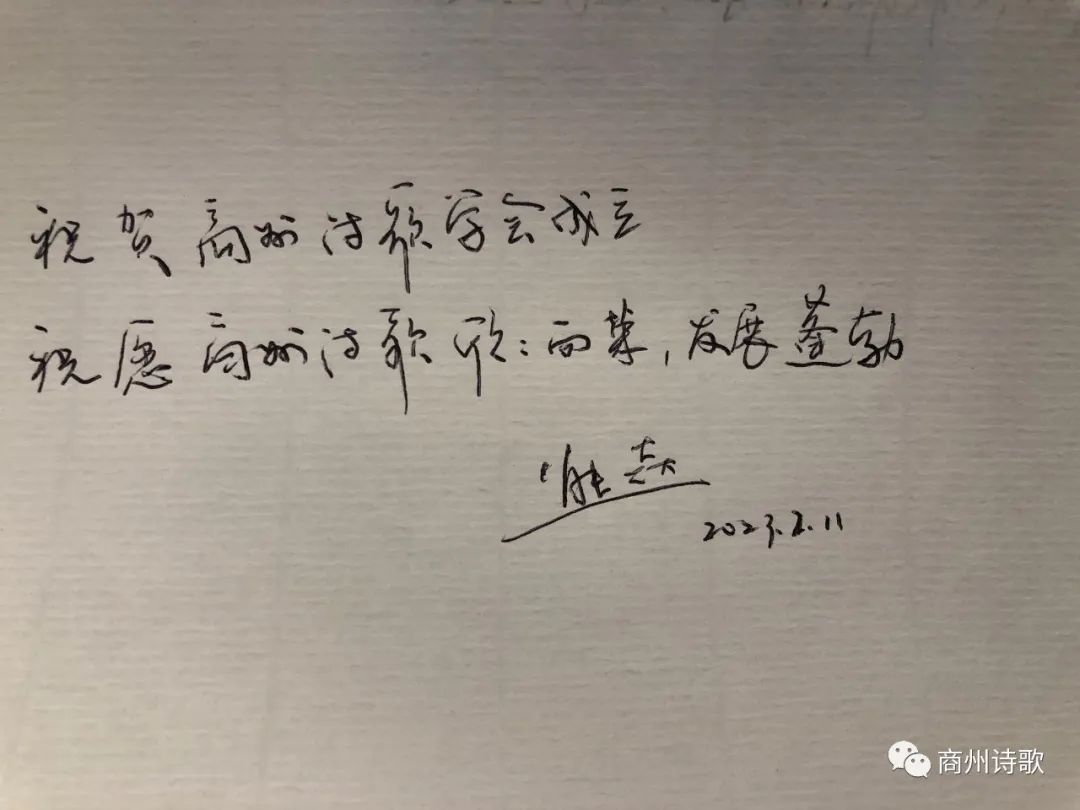 祝贺商州诗歌学会成立
祝愿商州诗歌欣:向荣,发展蓬勃
2023.2.11
商州诗歌